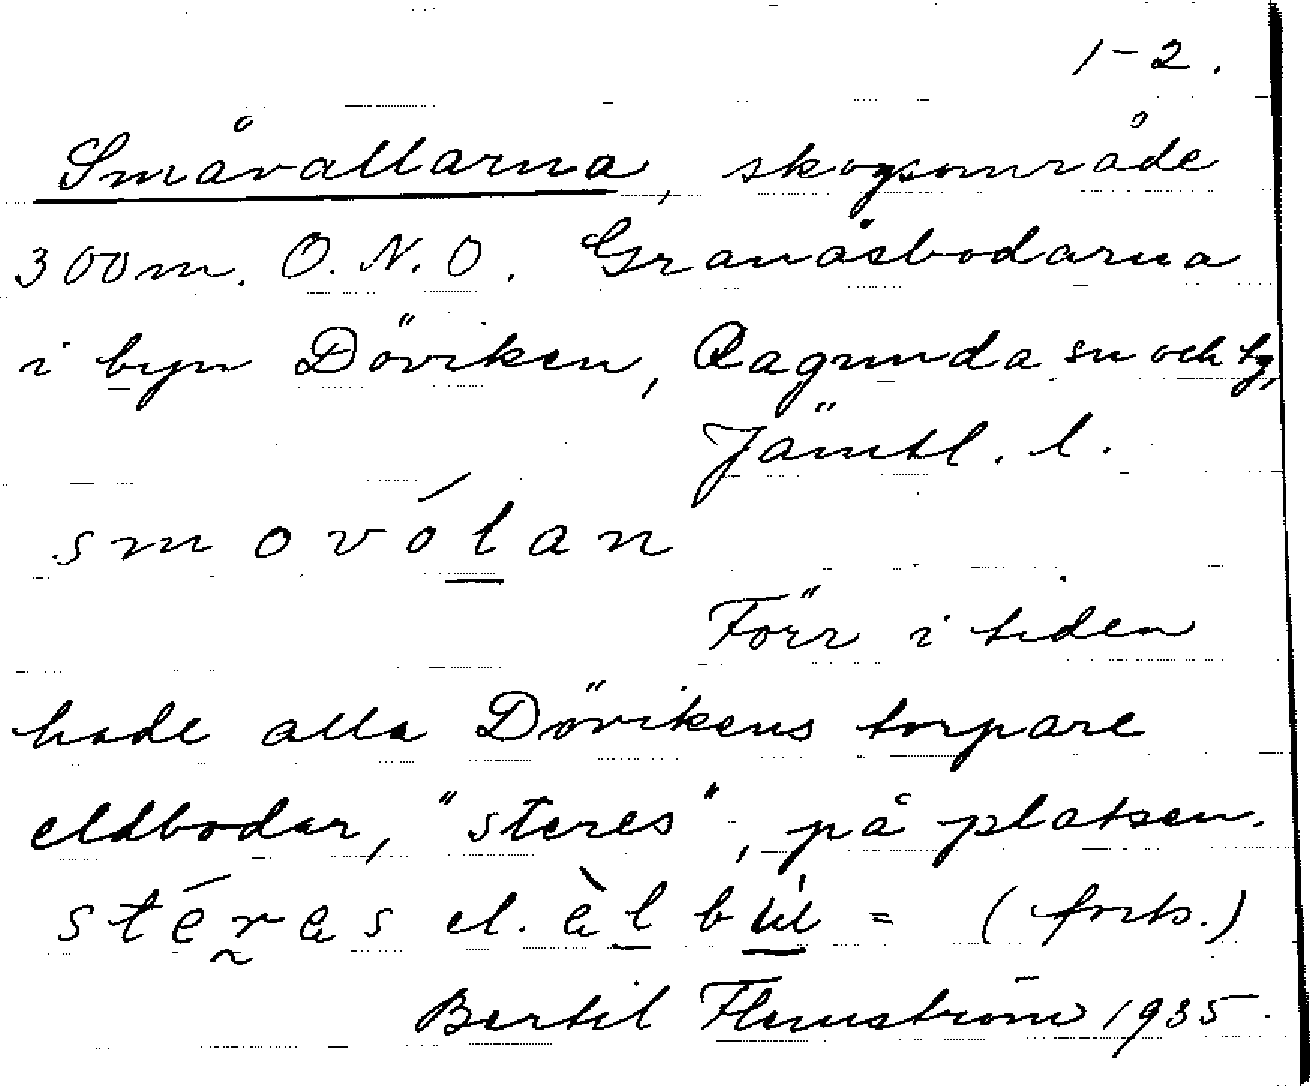 1-2.
Småvallarna, skogsområde
300m. O.N.O. Granåsbodarna
i byn Döviken, Ragunda sn och tg,
Jämtl. l.
smovólan
Förr i tiden
hade alla Dövikens torpare
eldbodar, "steres", på platsen.
stéras el. èlbu̇l = (forts.)
Bertil Flemström 1935.